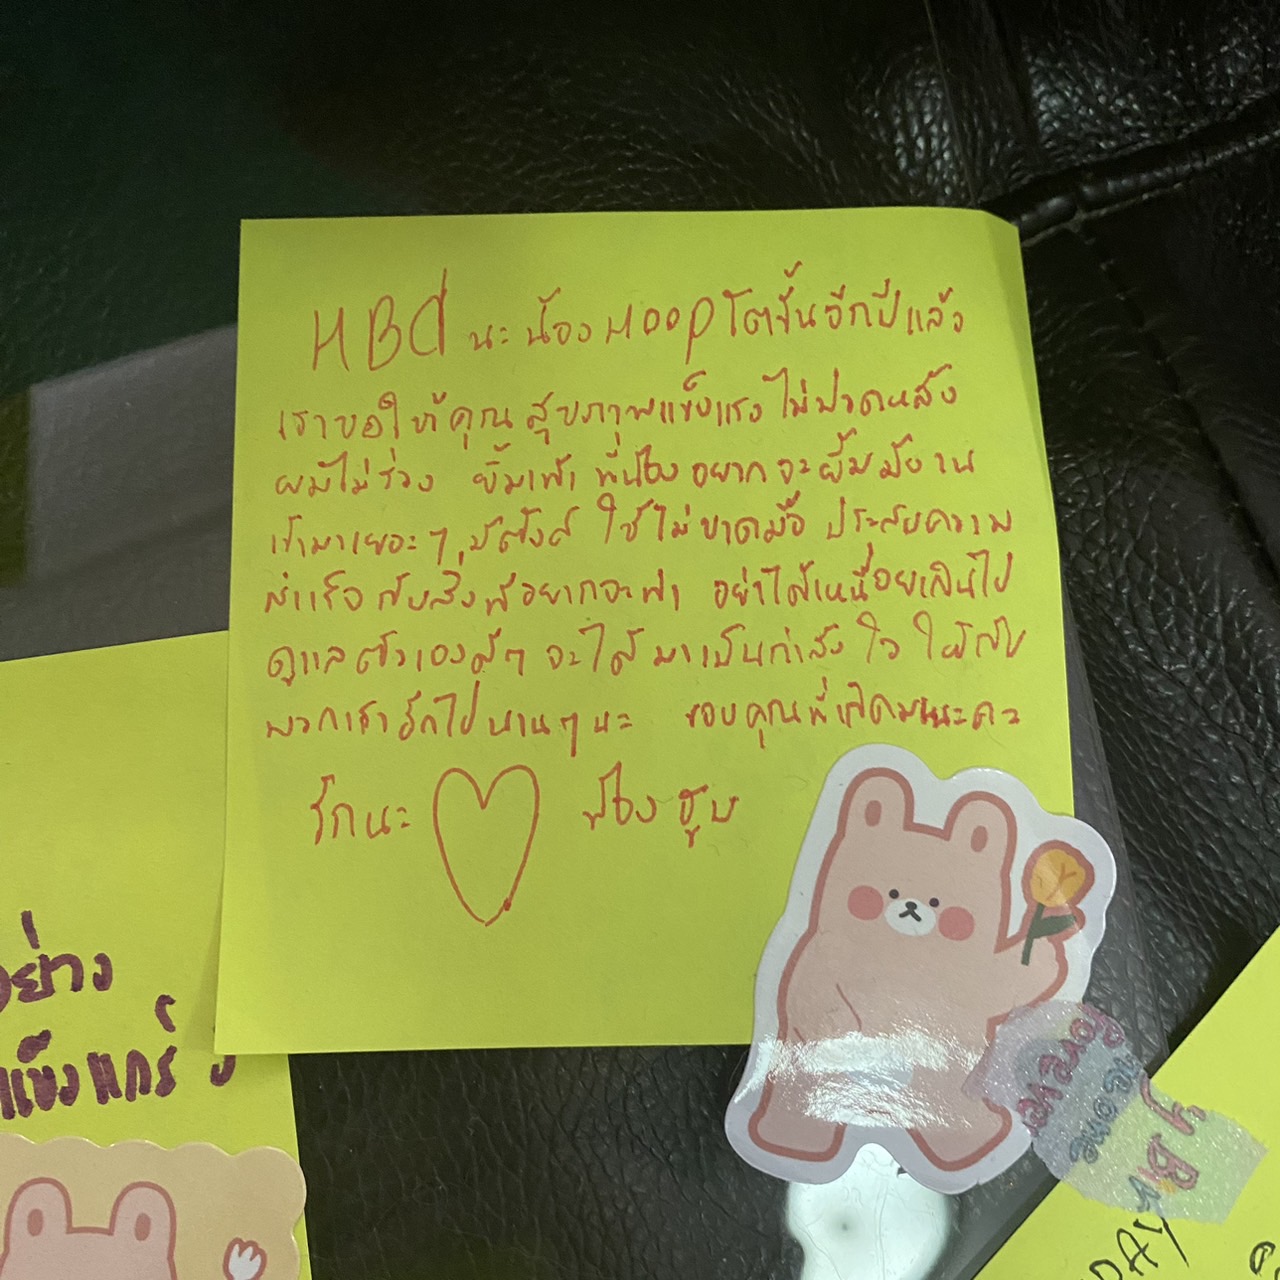 HBd นะ น้อง Hoop โตขึ้นอีกปีแล้ว
เราขอให้คุณสุขภาพแข็งแรง ไม่ปวดหลัง
ผมไม่ร่วง
อยากจะยิ้ม มีงาน
เข้ามาเยอะๆ มีตังค์ ใช้ไม่ขาดมือ ประสบความ
สำเร็จกับสิ่งที่อยากจะทำ อย่าได้เหนื่อยเกินไป
ดูแลตัวเองดีๆ จะได้มาเป็นกำลังใจ ให้กับ
พวกเรารักไปนานๆนะ ขอบคุณที่เกิดมานะคะ
รักนะ
อย่าง
แข็งแกร่ง
forever